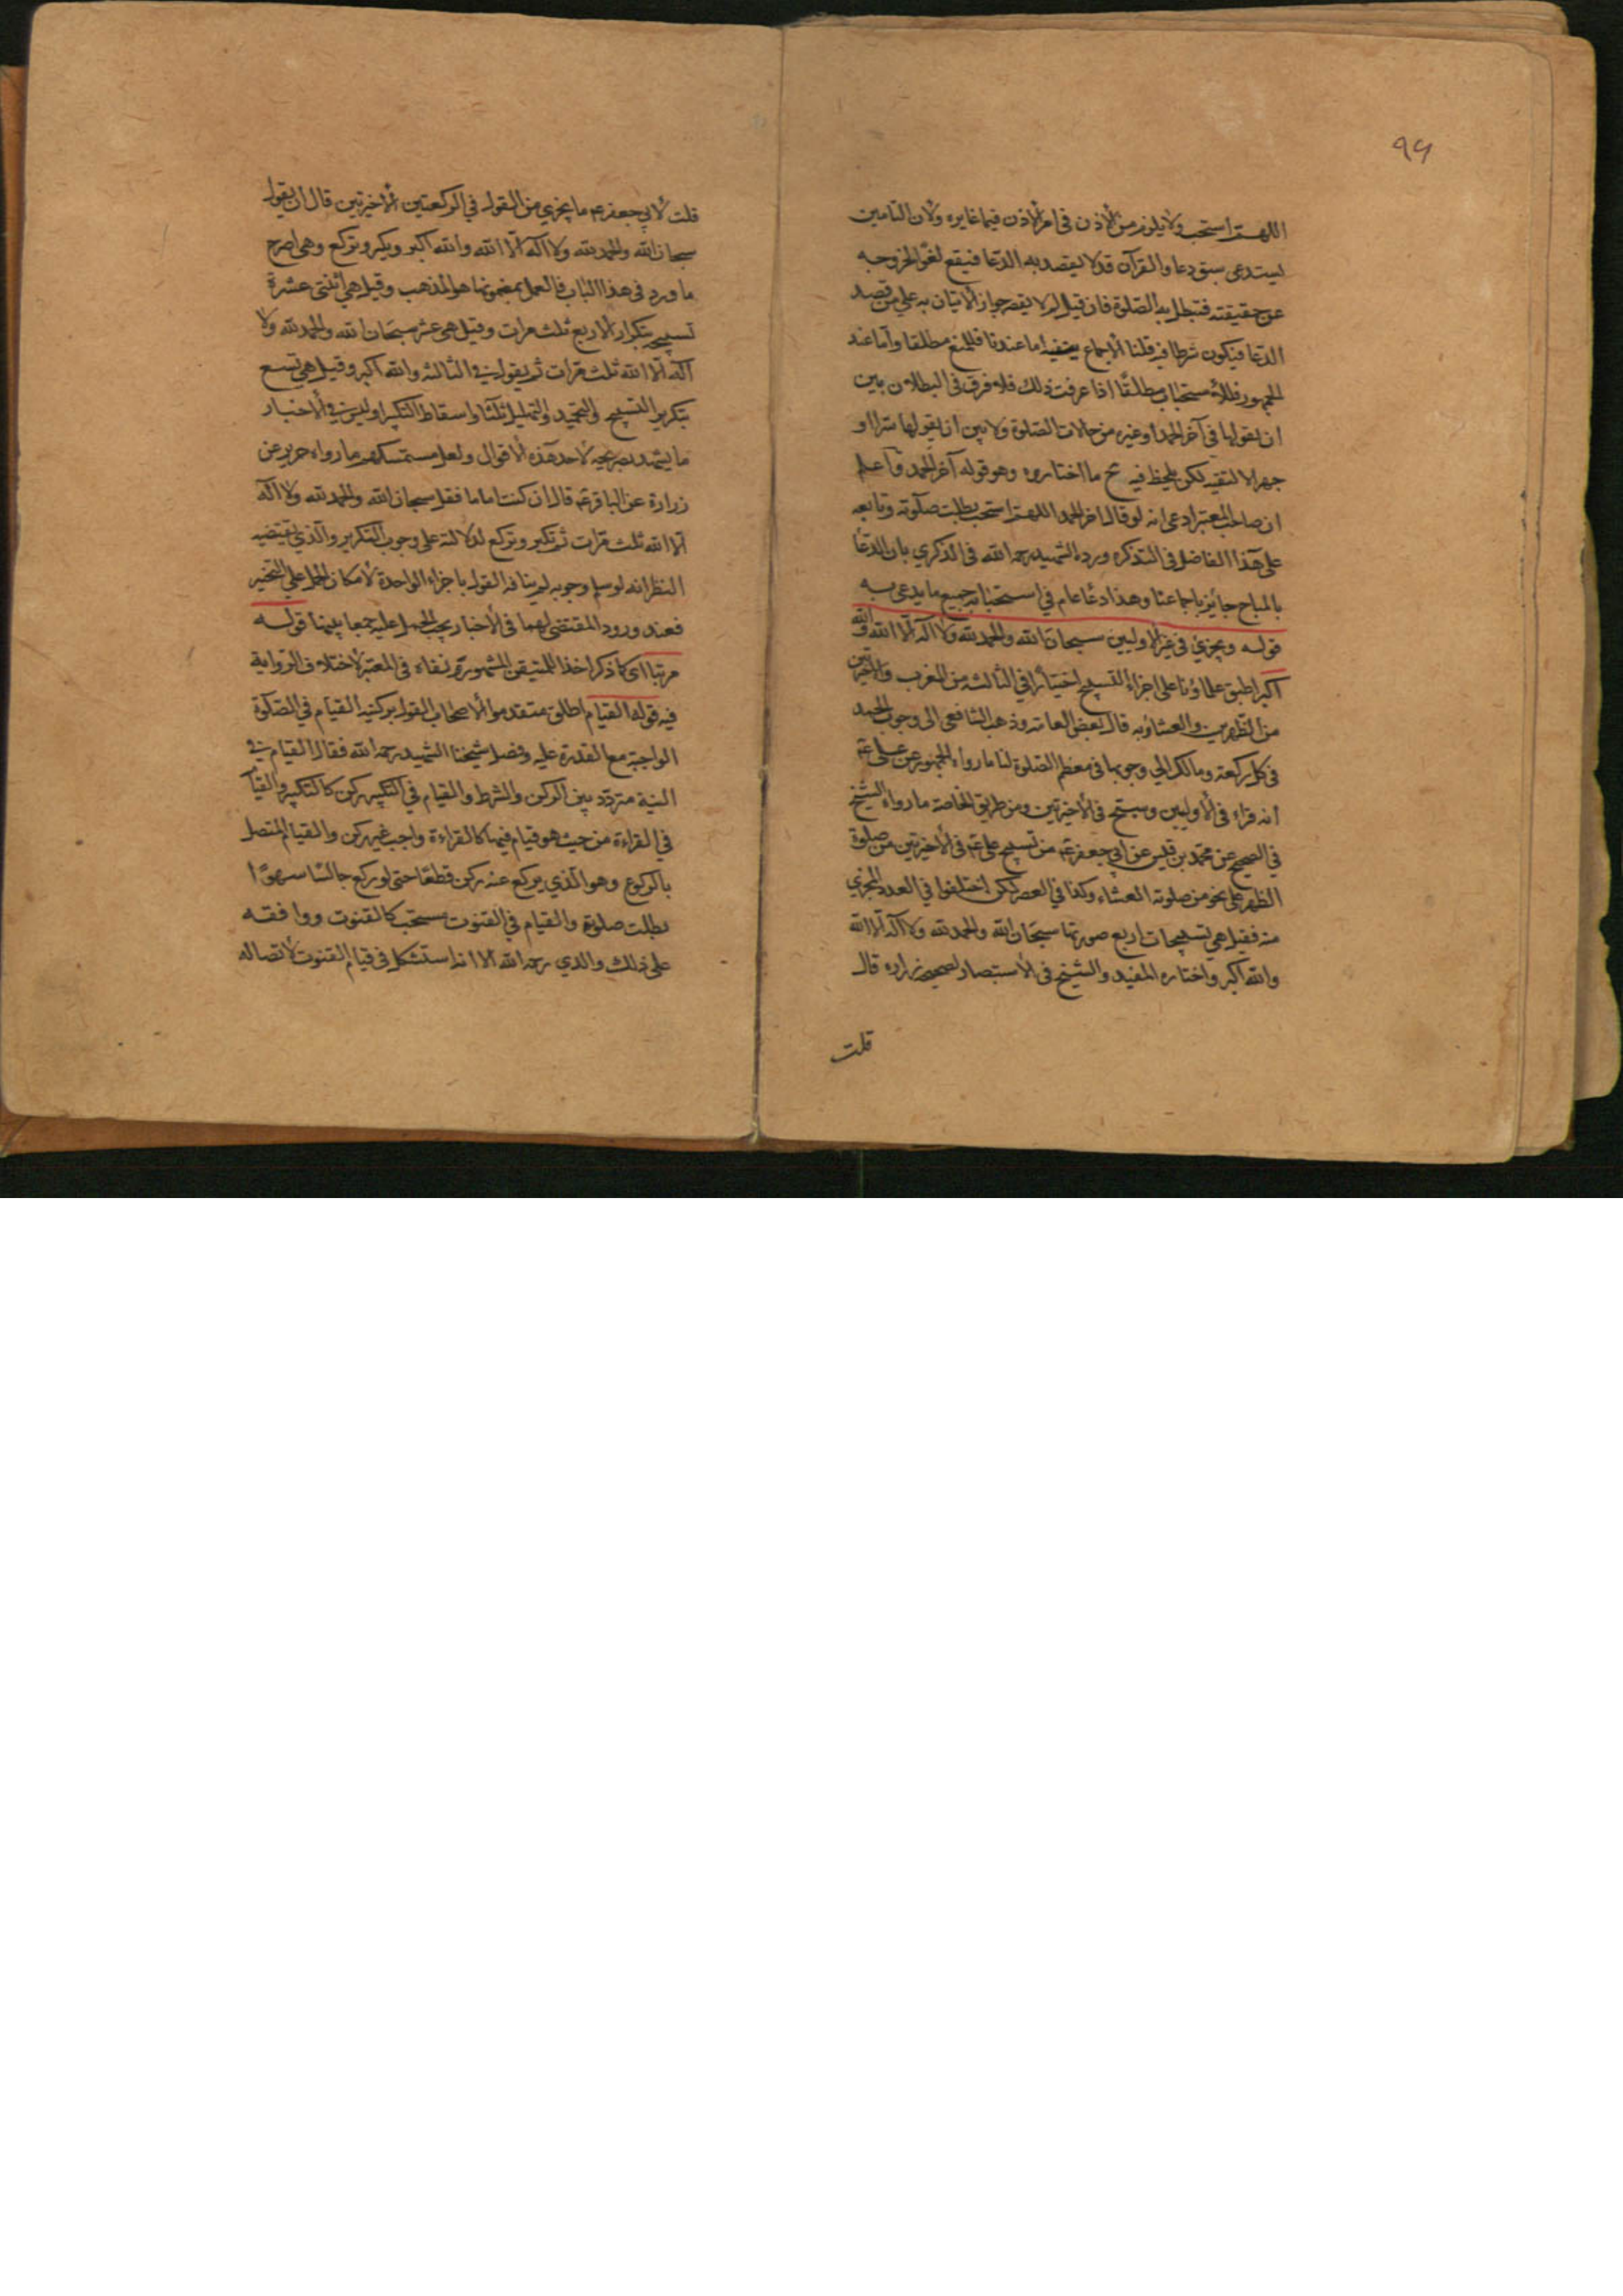 ٩٩
اللهم استجب ولا يلزم من الاذن في امر الاذن فيما غايره ولان التامين
يستدعى سبق دعا والقرآن قد لا يقصد به الدعا فيقع لغوًا لخروجه
عن حقيقته فتبطل به الصلوة فان قيل لم لا يقصر جواز الاتيان به على من قصد
الدعا فيكون شرطا فيه قلنا الاجماع اما عندنا فللمنع مطلقا واما عند
الجمهور فللاستحباب مطلقًا اذا عرفت ذلك فلا فرق في البطلان بين
ان يقولها في آخر الحمد او غيره من حالات الصلوة ولا بين ان يقولها سرا او
جهرا الا لتقيه لكن يلحظ فيه ح ما اختاروه وهو قوله آخر الحمد واعلم
ان صاحب المعتبر ادعى انه لو قال اخر الحمد اللهم استجب بطلت صلوته وتابعه
على هذا الفاضل في التذكره ورده الشهيد رحمه الله في الذكرى بان الدعا
بالمباح جايز باجماعنا وهذا دعا عام في استجابة جميع ما يدعى به
قوله ويجزي في غير الاوليين سبحان الله والحمد لله ولا اله الا الله والله
اكبر اطبق علماؤنا على اجزاء التسبيح اختيارا في الثالثه من المغرب والاخيرتين
من الظهرين والعشاء وبه قال بعض العامه وذهب الشافعى الى وجوب الحمد
في كل ركعة ومالك الى وجوبها في معظم الصلوة لنا ما رواه الجمهور عن على ع
انه قراء في الاوليين وسبح في الاخيرتين ومن طريق الخاصه ما رواه الشيخ
في الصحيح عن محمد بن قيس عن ابي جعفر ع من تسبيح على ع في الاخيرتين من صلوة
الظهر على نحو من صلوته العشاء وكذا في العصر لكن اختلفوا في العدد المجزي
منه فقيل هي تسبيحات اربع صورتها سبحان الله والحمد لله ولا اله الا الله
والله اكبر واختاره المفيد والشيخ في الاستبصار لصحيح زراره قال
قلت
قلت لابي جعفر ع ما يجزي من القول في الركعتين الاخيرتين قال ان يقول
سبحان الله والحمد لله ولا اله الا الله والله اكبر ويكبر وتركع وهى اصرح
ما ورد في هذا الباب فالعمل بمضمونها هو المذهب وقيل هي اثنتى عشرة
تسبيحه بتكرار الاربع ثلث مرات وقيل هي عشر سبحان الله والحمد لله ولا
اله الا الله ثلث مرات ثم يقول في الثالثه والله اكبر وقيل هي تسع
بتكرير التسبيح والتحميد والتهليل ثلثا واسقاط التكبير وليس في الاخبار
ما يشهد بصريحه لاحد هذه الاقوال ولعل مستمسكهم ما رواه حريز عن
زرارة عن الباقر ع قال ان كنت اماما فقل سبحان الله والحمد لله ولا اله
الا الله ثلث مرات ثم تكبر وتركع لدلالته على وجوب التكرير والذي يقتضيه
النظر انه لو سلم وجوبه لم ينافه القول باجزاء الواحدة لامكان الحمل على التخيير
فعند ورود المقتضى لهما في الاخبار يجب الحمل عليه جمعا بينهما قوله
مرتبا اى كما ذكر اخذا بالمتيقن المشهور ونفاه في المعتبر لاختلاف الرواية
فيه قوله القيام اطلق متقدموا الاصحاب القول بركنيه القيام في الصلوة
الواجبة مع القدرة عليه وفصل شيخنا الشهيد رحمه الله فقال القيام في
النية متردد بين الركن والشرط والقيام في التكبير ركن كالتكبير والقيام
في القراءة من حيث هو قيام فيها كالقراءة واجب غير ركن والقيام المتصل
بالركوع وهو الذي يركع عنه ركن قطعًا حتى لو ركع جالسًا سهوًا
بطلت صلوته والقيام في القنوت مستحب كالقنوت ووافقه
على ذلك والدي رحمه الله الا انه استشكل في قيام القنوت لاتصاله